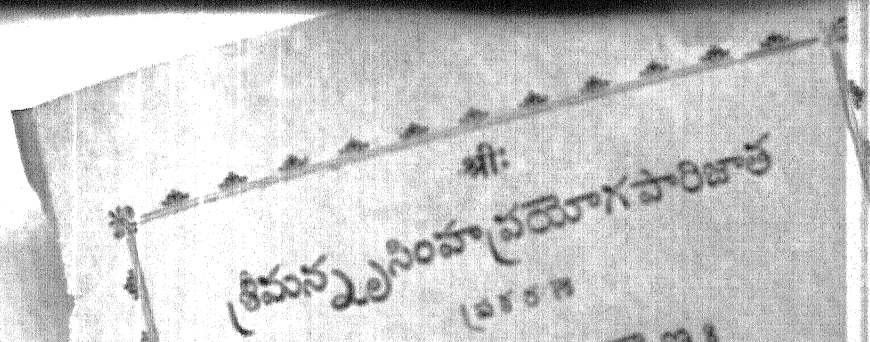 श्रीः
శ్రీమన్నృసింహప్రయోగపారిజాత
ప్రకరణ